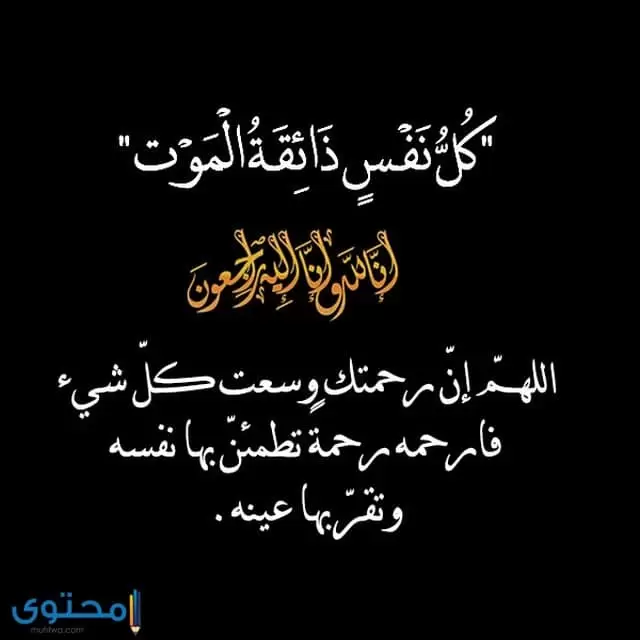 "كُلُّ نَفْسٍ ذَائِقَةُ الْمَوْت"
إنَّا لله وإنَّا إِلَيْهِ رَاجِعونَ
اللهمّ إنّ رحمتك وسعت كلّ شيء
فارحمه رحمة تطمئنّ بها نفسه
وتقرّ بها عينه .
محتوى
muhtwa.com